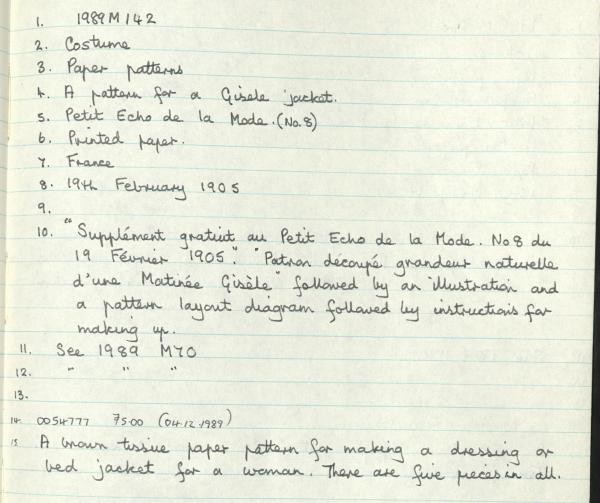 1. 1989 M 142
2. Costume
3. Paper patterns
4. A pattern for a Gisèle jacket.
5. Petit Echo de la Mode. (No. 8)
6. Printed paper.
7. France
8. 19th February 1905
9.
10. "Supplément gratuit au Petit Echo de la Mode. No 8 du
19 Février 1905". "Patron découpé grandeur naturelle
d'une Matinée Gisèle" followed by an illustration and
a pattern layout diagram followed by instructions for
making up.
11. See 1989 M70
12. " " "
13.
14. 0054777 75.00 (04.12.1989)
15 A brown tissue paper pattern for making a dressing or
bed jacket for a woman. There are five pieces in all.